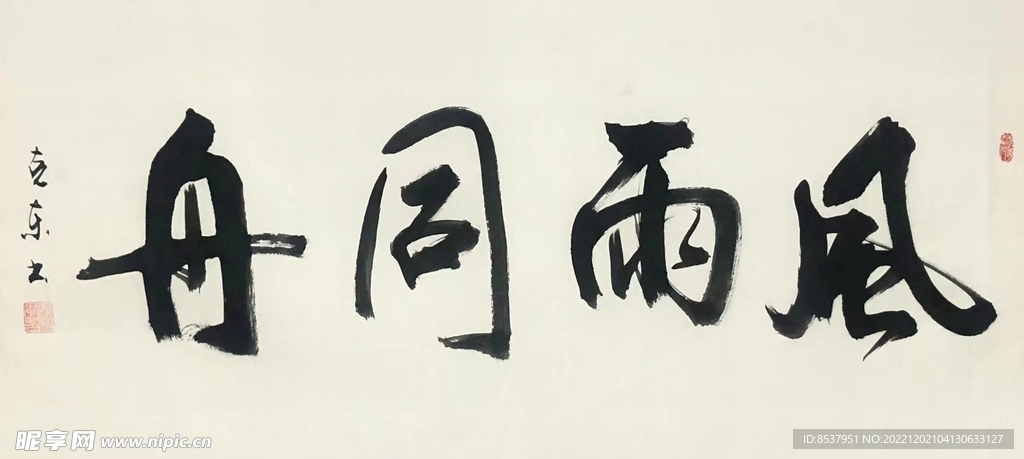 風雨同舟
克东书
昵享网 www.nipic.cn
ID:8537951 NO:20221202104130633127